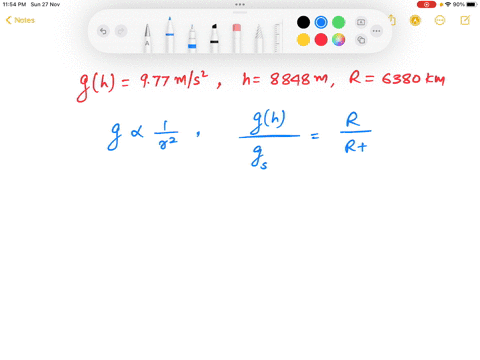 11:54 PM Sun 27 Nov
90%
Notes
g(h) = 9.77 m/s², h = 8848 m, R = 6380 km
g ∝ 1/r², g(h)/gₛ = R/R+